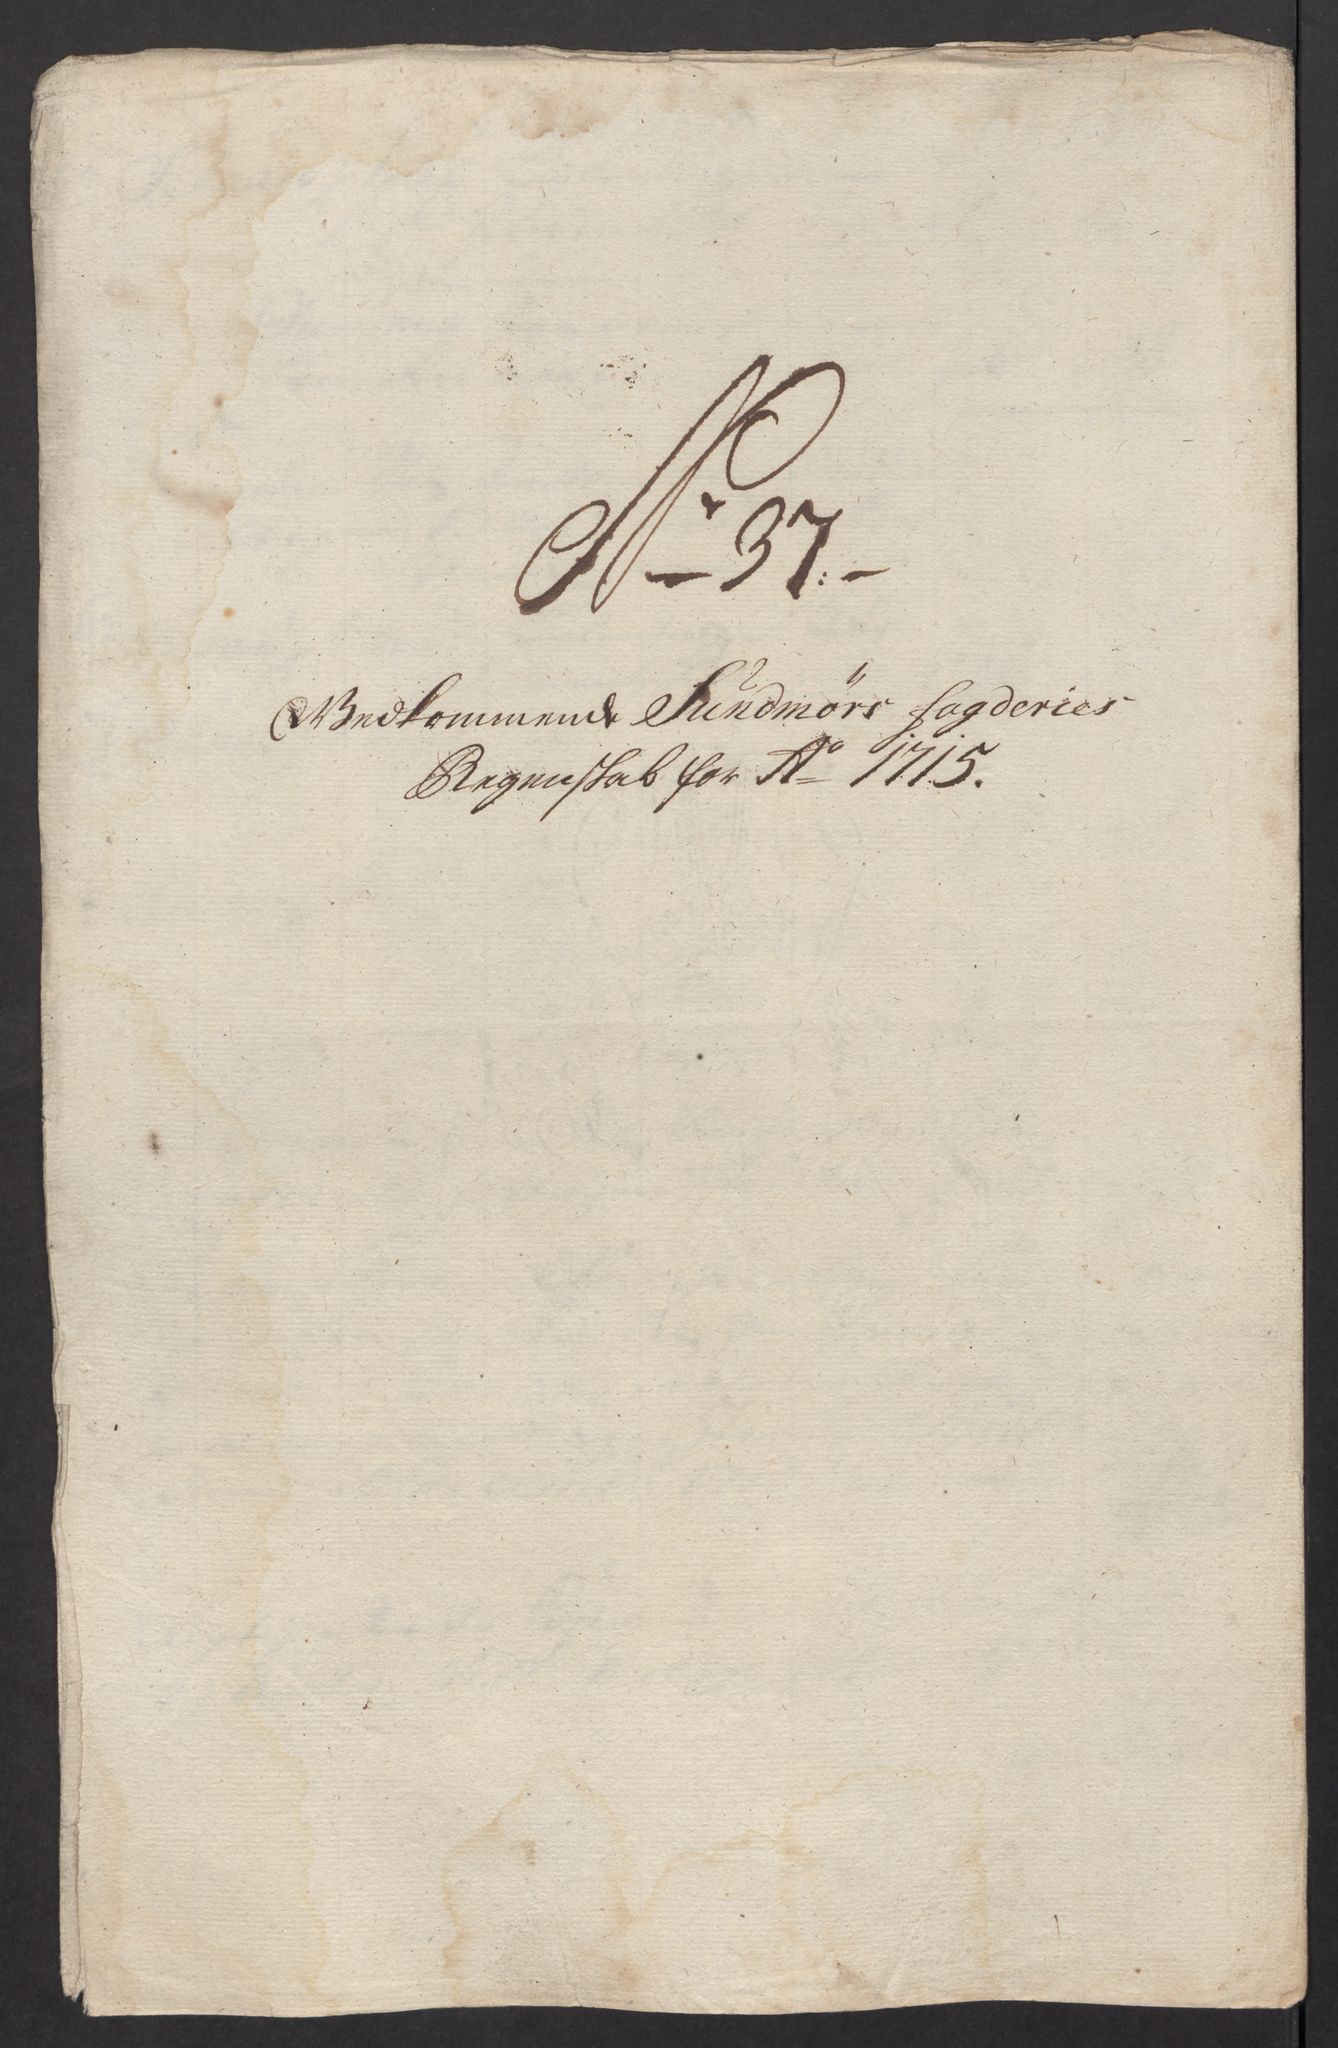 No 37.
Vedkommende Sundmörs fogderies
Regenskab for Ao 1715.